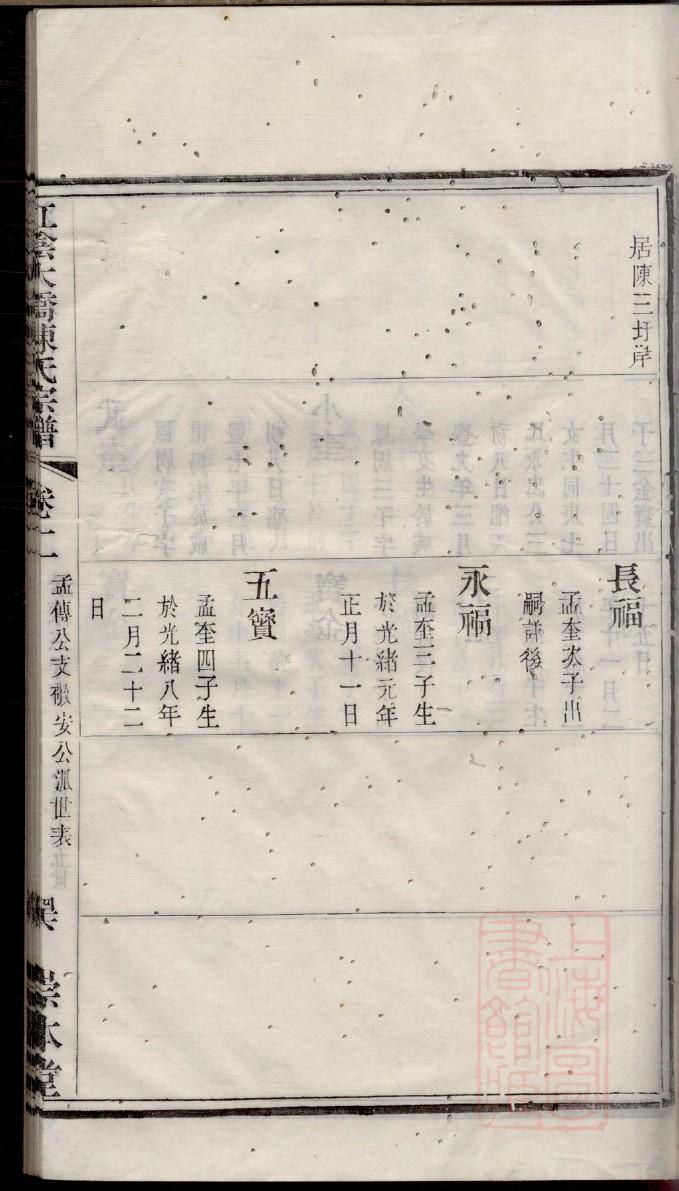 居陳三圩岸
長福
孟奎次子出
嗣詳後
永福
孟奎三子生
於光緒元年
正月十一日
五寶
孟奎四子生
於光緒八年
二月二十二
日
江陰大橋陳氏宗譜
卷十二
孟傳公支敬安公派世表
宗本堂
上海圖書館藏